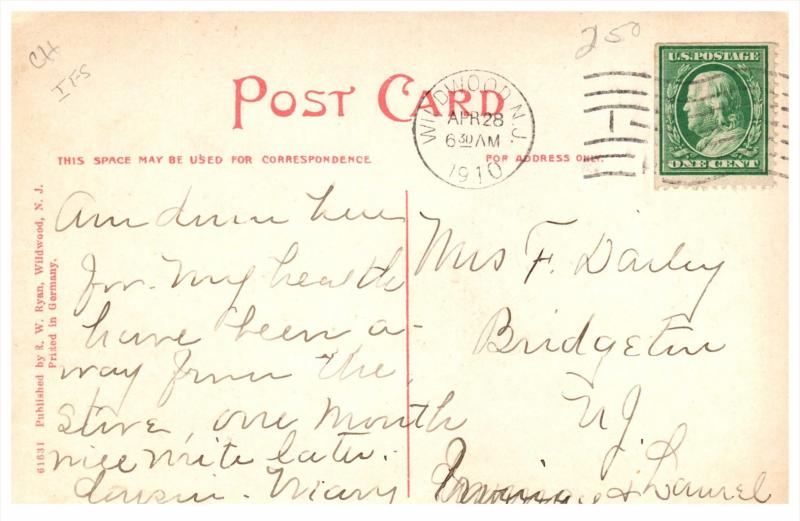 CH
IFS
250
POST CARD
WILDWOOD N.J.
APR 28
6 30 AM
1910
U.S. POSTAGE
ONE CENT
THIS SPACE MAY BE USED FOR CORRESPONDENCE
FOR ADDRESS ONLY.
61631 Published by R. W. Ryan, Wildwood, N. J.
Prined in Germany.
Am down here
for my health
have been a-
way from the
store, one month
will write later.
Cousin Mary
Mrs F. Dailey
Bridgeton
NJ.
Irving & Laurel